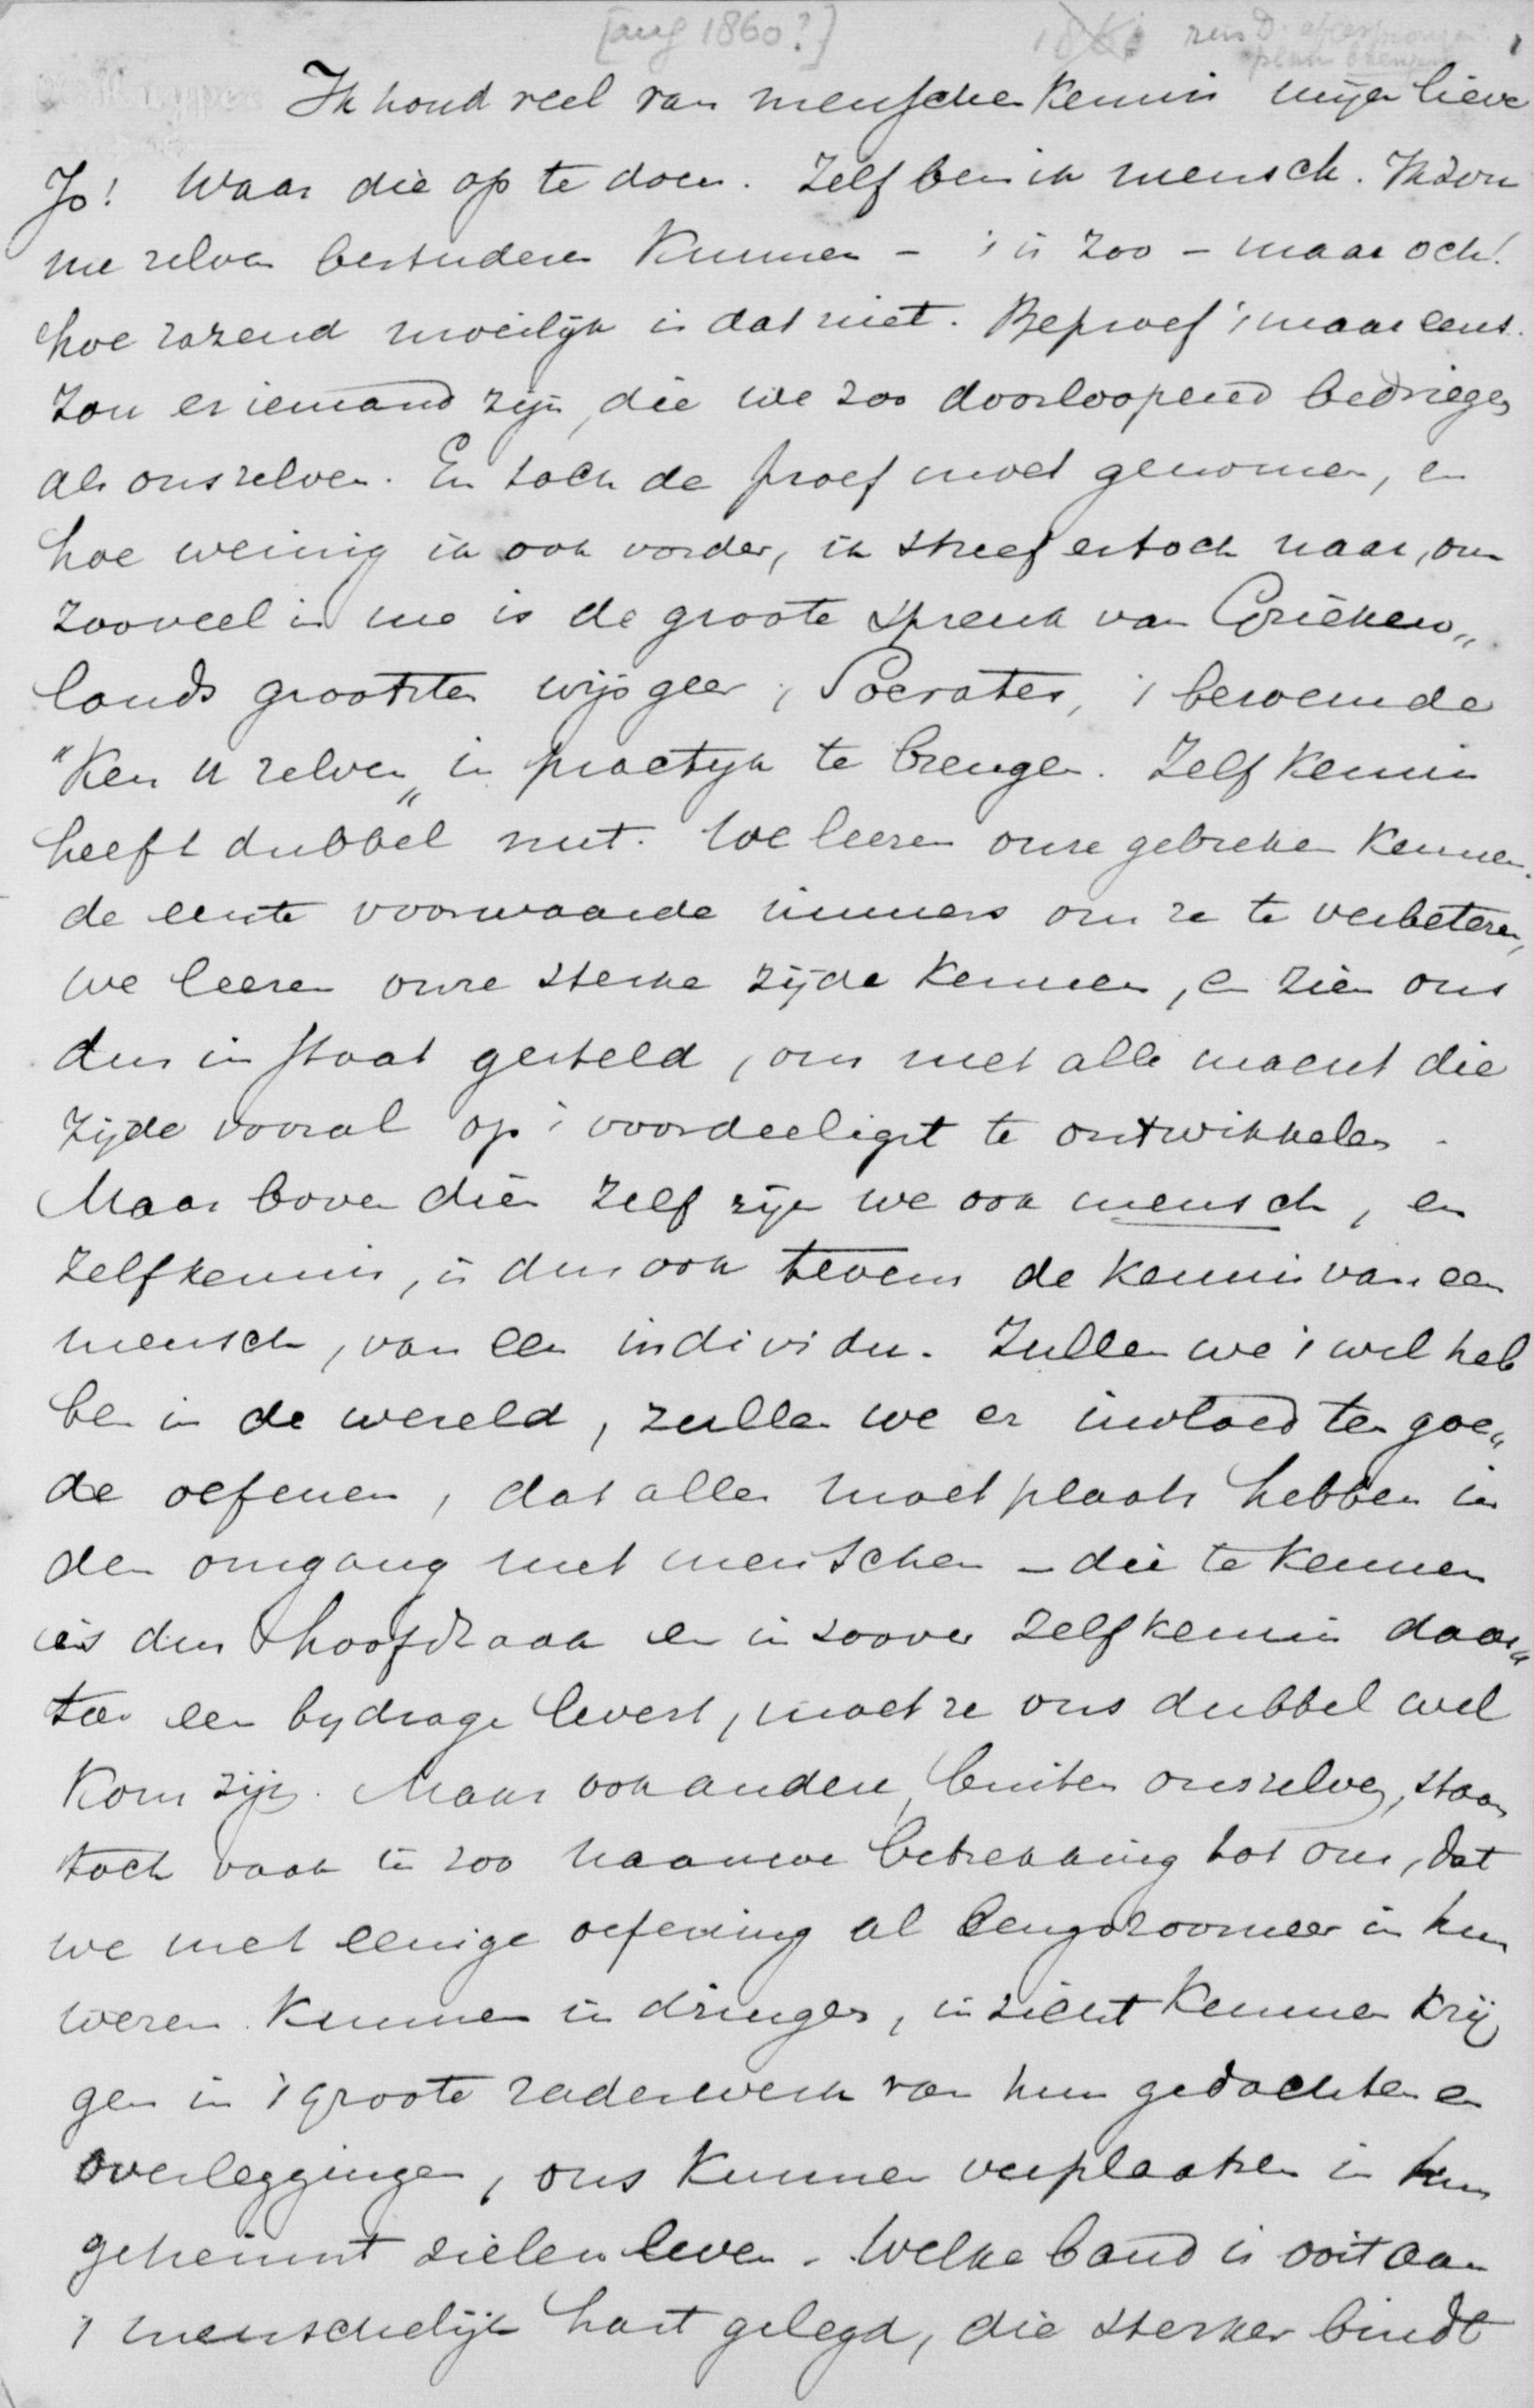 [aug 1860?]
1
Ik houd veel van menschenkennis mijn lieve
Jo! Waar die op te doen. Zelf ben ik mensch. Ik zou
me zelven bestuderen kunnen - 't is zoo - maar och!
hoe razend moeilijk is dat niet. Beproef 't maar eens.
Zou er iemand zijn, die we zoo doorloopend bedriegen
als onszelven. En toch de proef moet genomen, en
hoe weinig ik ook vorder, ik streef er toch naar, om
zooveel in me is de groote spreuk van Grieken„
lands grootsten wijsgeer, Socrates, 't beroemde
"Ken u zelven„ in practijk te brengen. Zelfkennis
heeft dubbel nut. We leeren onze gebreken kennen.
de eerste voorwaarde immers om ze te verbeteren,
we leeren onze sterke zijde kennen, en zien ons
dus in staat gesteld, om met alle macht die
zijde vooral op 't voordeeligst te ontwikkelen.
Maar bovendien zelf zijn we ook mensch, en
zelfkennis, is dus ook tevens de kennis van een
mensch, van een individu. Zullen we 't wel heb
ben in de wereld, zullen we er invloed ten goe„
de oefenen, dat alles moet plaats hebben in
den omgang met menschen - die te kennen
is dus hoofdzaak en in zoover zelfkennis daar„
toe een bydrage levert, moet ze ons dubbel wel
kom zijn. Maar ook andere, buiten onszelven, staan
toch vaak in zoo naauwe betrekking tot ons, dat
we met eenige oefening al lengszoomeer in hun
wezen kunnen indringen, inzicht kunnen krij
gen in 't groote raderwerk van hun gedachten en
overleggingen, ons kunnen verplaatsen in hun
geheimst zielenleven. Welke band is ooit aan
't menschelijk hart gelegd, die sterker bindt